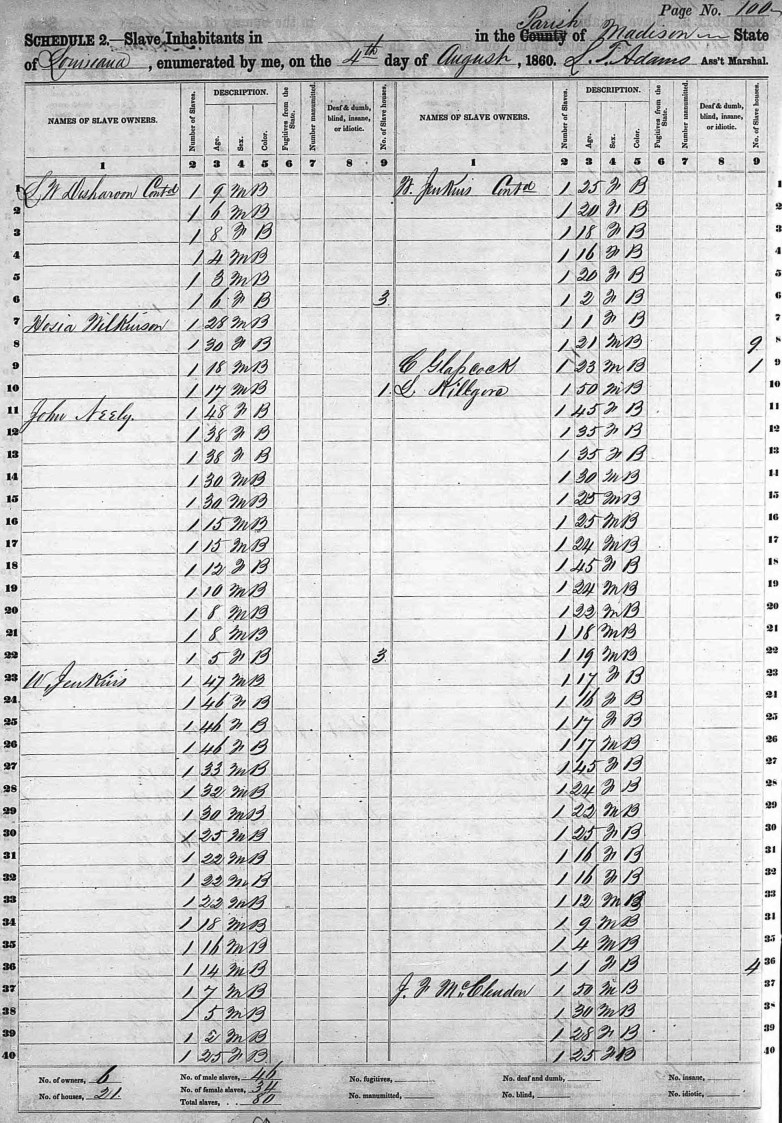 Page No. 100
SCHEDULE 2.—Slave Inhabitants in in the County Parish of Madison State
of Louisiana, enumerated by me, on the 4th day of August, 1860. L. F. Adams Ass't Marshal.
NAMES OF SLAVE OWNERS. Number of Slaves. DESCRIPTION. Age. Sex. Color. Fugitives from the State. Number manumitted. Deaf & dumb, blind, insane, or idiotic. No. of Slave houses. NAMES OF SLAVE OWNERS. Number of Slaves. DESCRIPTION. Age. Sex. Color. Fugitives from the State. Number manumitted. Deaf & dumb, blind, insane, or idiotic. No. of Slave houses.
1 2 3 4 5 6 7 8 9 1 2 3 4 5 6 7 8 9
1 S W Disharoon Contd 1 9 M B W. Jenkins Contd 1 25 F B 1
2 1 6 M B 1 20 F B 2
3 1 8 F B 1 18 F B 3
4 1 4 M B 1 16 F B 4
5 1 3 M B 1 20 F B 5
6 1 6 F B 3 1 2 F B 6
7 Hosia Wilkinson 1 28 M B 1 1 F B 7
8 1 30 F B 1 21 M B 9 8
9 1 18 M B C Glapcock 1 23 M B 1 9
10 1 17 M B 1 L Killgore 1 50 M B 10
11 John Neely. 1 48 F B 1 45 F B 11
12 1 38 F B 1 35 F B 12
13 1 38 F B 1 35 F B 13
14 1 30 M B 1 30 M B 14
15 1 30 M B 1 25 M B 15
16 1 15 M B 1 25 M B 16
17 1 15 M B 1 24 M B 17
18 1 12 F B 1 45 F B 18
19 1 10 M B 1 24 M B 19
20 1 8 M B 1 22 M B 20
21 1 8 M B 1 18 M B 21
22 1 5 F B 3 1 19 M B 22
23 W Jenkins 1 47 M B 1 17 F B 23
24 1 46 F B 1 16 F B 24
25 1 46 F B 1 17 F B 25
26 1 46 F B 1 17 M B 26
27 1 33 M B 1 45 F B 27
28 1 32 M B 1 24 F B 28
29 1 30 M B 1 22 M B 29
30 1 25 M B 1 25 F B 30
31 1 22 M B 1 16 F B 31
32 1 22 M B 1 16 F B 32
33 1 22 M B 1 12 M B 33
34 1 18 M B 1 9 M B 34
35 1 16 M B 1 4 M B 35
36 1 14 M B 1 1 F B 4 36
37 1 7 M B J. F McClendon 1 50 M B 37
38 1 5 M B 1 30 M B 38
39 1 2 M B 1 28 F B 39
40 1 25 F B 1 25 F B 40
No. of owners, 6 No. of male slaves, 46 No. fugitives, No. of deaf and dumb, No. insane,
No. of houses, 21 No. of female slaves, 34 No. manumitted, No. blind, No. idiotic,
Total slaves, 80